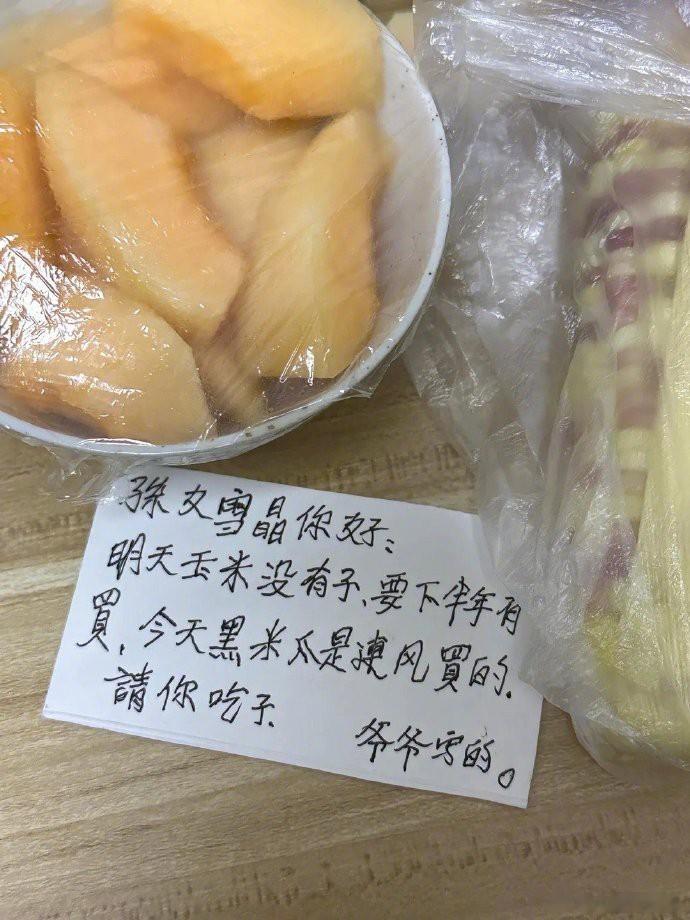 孫女雪晶你好：
明天玉米没有了、要下半年有
買，今天黑米瓜是連风買的.
請你吃了
爷爷写的。